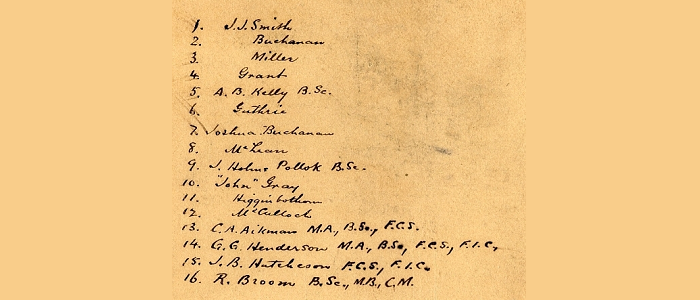 1. J.J. Smith
2. Buchanan
3. Miller
4. Grant
5. A. B. Kelly B.Sc.
6. Guthrie
7. Joshua Buchanan
8. McLean
9. J. Holms Pollok B.Sc.
10. "John" Gray
11. Higginbothom
12. McCulloch
13. C.A. Aikman M.A., B.Sc., F.C.S.
14. G.G. Henderson M.A., B.Sc, F.C.S., F.I.C.
15. J. B. Hutcheson F.C.S., F.I.C.
16. R. Broom B.Sc., M.B., C.M.